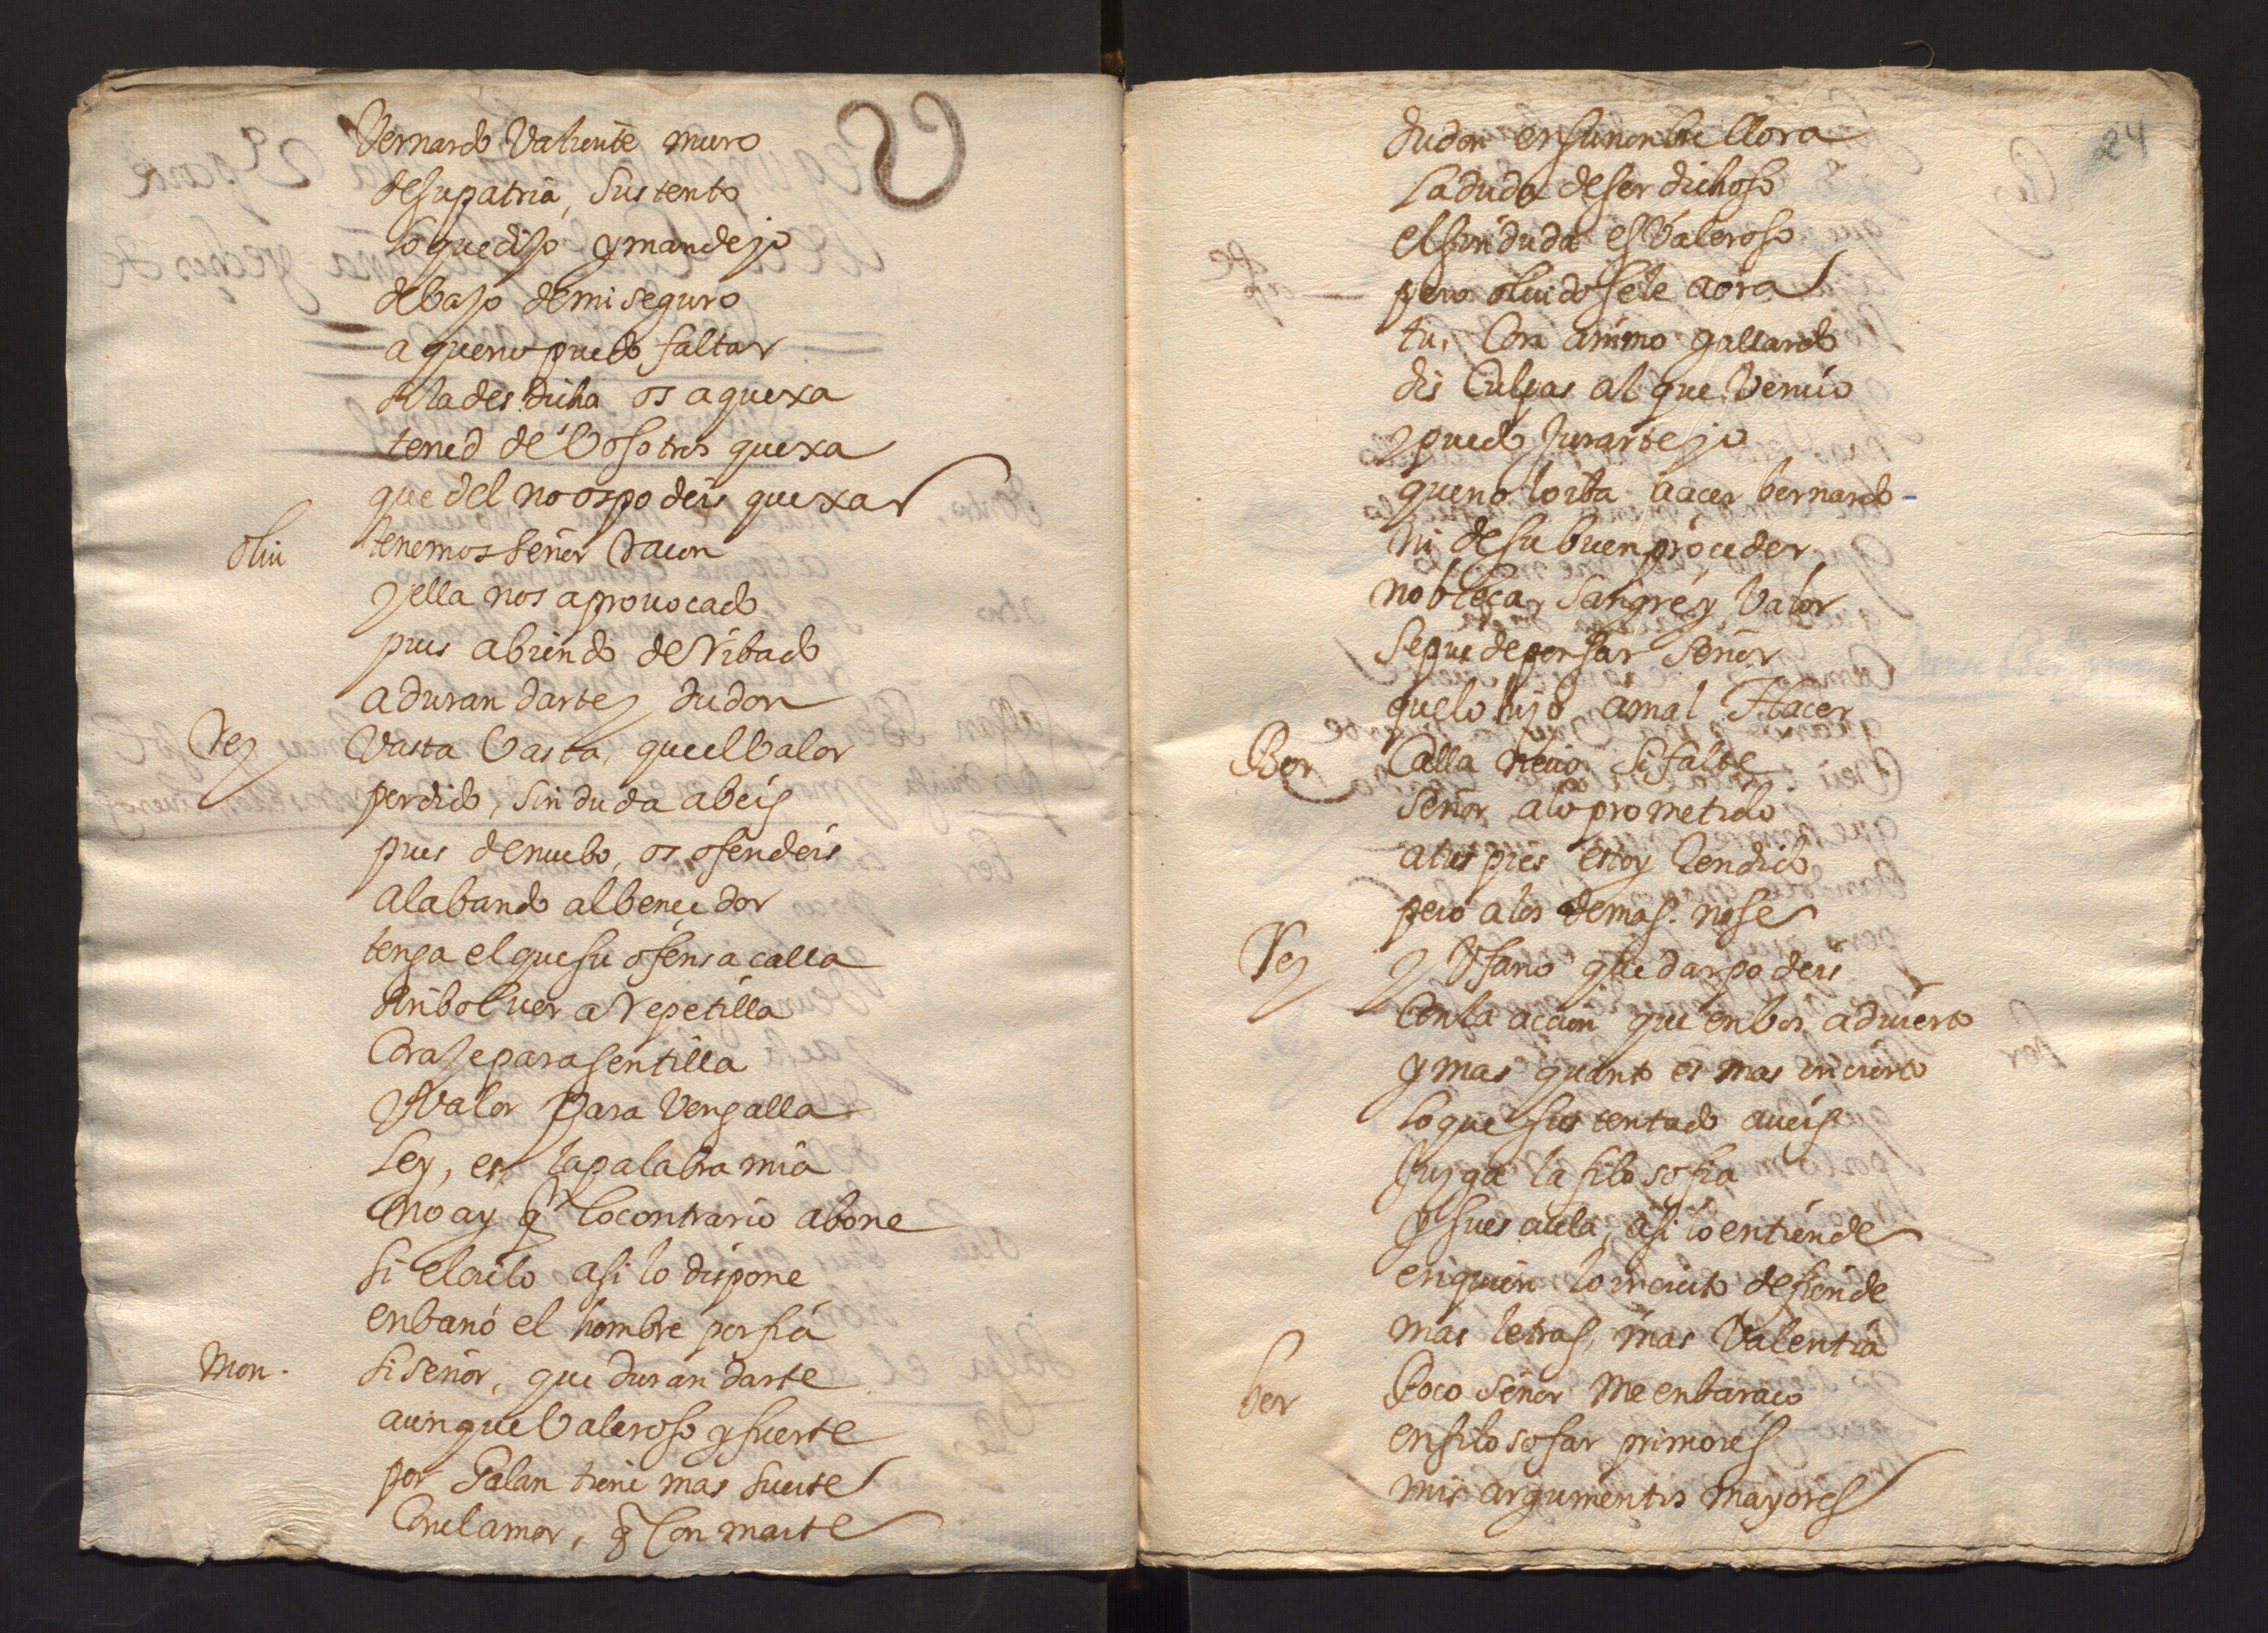 Vernardo Valiente muro
desupatria, sustento
loquedijo ymandejo
debajo demiseguro
aqueno puedo faltar
si la desdicha os aquexa
tened de Vosotros quexa
que del noospodeis quexar
oliu tenemos señor racon
y ella nos aprouocado
pues abiendo derribado
a durandarte y dudon
Rey Vasta Vasta, queelvalor
perdido, sin duda abeis
pues denuebo, os ofendeis
alabando albencedor
tenga elquesu ofensa calla
sinboluer a repetilla
Coraje parasentilla
y valor para Vengalla
Ley, es, lapalabra mia
no ay q locontrario abone
si elcielo asi lo dispone
enbano el hombre porfia
Mon. si señor, que durandarte
aunque Valeroso yfuerte
por Galan tiene mas suerte
Conelamor, q Con marte
24
dudon ensunonbre llora
la duda deser dichoso
el sin duda es Valeroso
pero oluidosele aora
tu, Con animo gallardo
dis Culpas al que Vencio
y puedo Jurarte jo
queno loiba aacer bernardo
ni desubuen proceder
nobleca, sangre y Valor
sepuedepensar señor
quelo hijo amal Hacer
Ber Calla necio, si falte
señor alo prometido
atus pies estoy Rendido
pero alos demas. nose
Rey y Vfano quedar podeis
Conla accion que enbos aduierto
y mas quanto es mas incierto
loque sustentado aueis
Juzga la filosofia
y sues cuela, asi lo entiende
enquien lo incierto defiende
mas letras, mas Valentia
ber Poco señor me enbaraco
enfilosofar primores
mis argumentos mayores